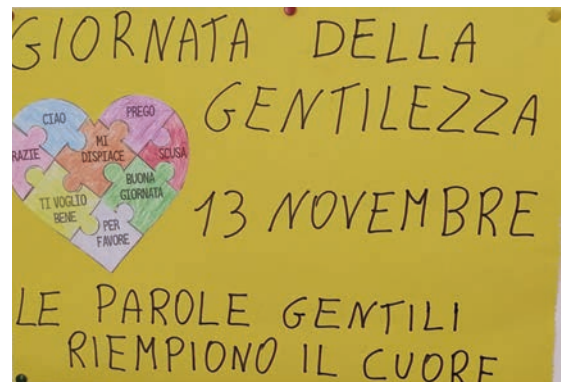 GIORNATA DELLA
GENTILEZZA
CIAO
PREGO
GRAZIE
MI
DISPIACE
SCUSA
TI VOGLIO
BENE
BUONA
GIORNATA
PER
FAVORE
13 NOVEMBRE
LE PAROLE GENTILI
RIEMPIONO IL CUORE